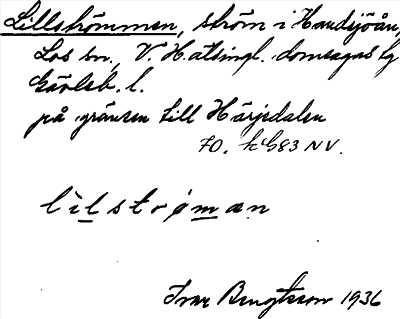 Lillströmmen, ström i Handsjöån,
Los sn., V. Hälsingl. domsagas tg
Gävleb. l.
på gränsen till Härjedalen
70. kG83 NV.
lìlstrøman
Ivar Bengtsson 1936